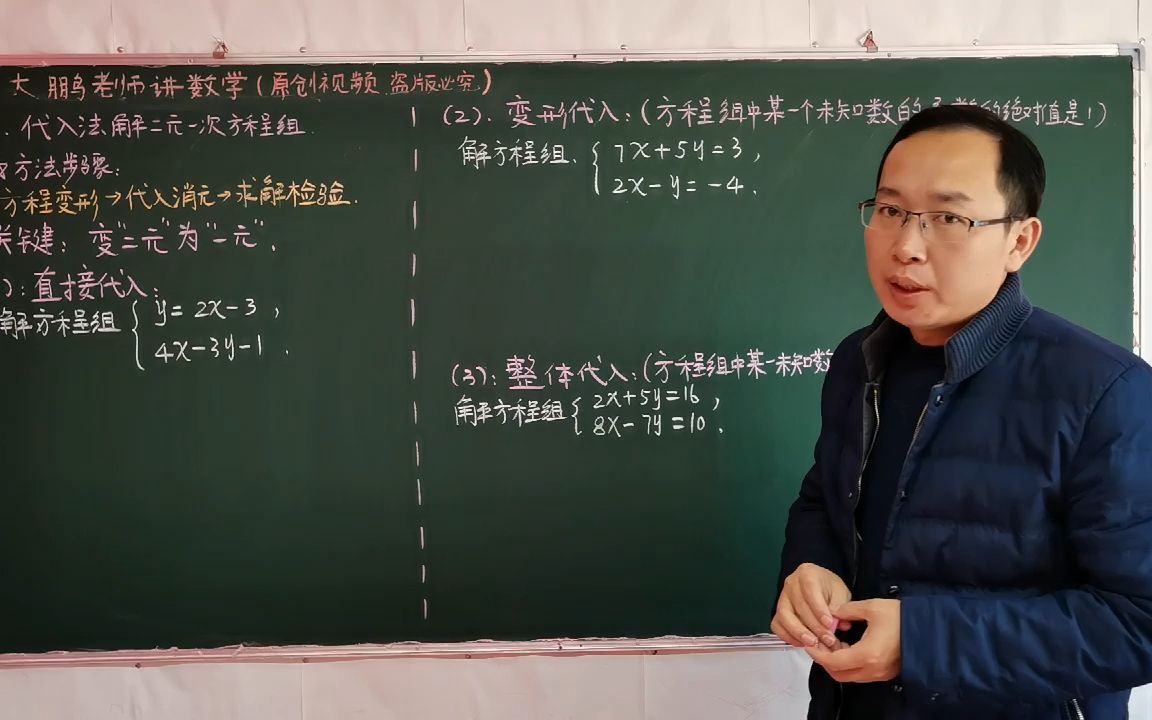 大鹏老师讲数学(原创视频 盗版必究)
.代入法解二元一次方程组
方法步骤:
方程变形→代入消元→求解检验.
关键:变"二元"为"一元".
):直接代入:
解方程组 { y=2x-3,
4x-3y-1.
(2).变形代入:(方程组中某一个未知数的 的绝对值是1)
解方程组. { 7x+5y=3,
2x-y=-4.
(3):整体代入:(方程组中某一未知数
解方程组 { 2x+5y=16,
8x-7y=10.